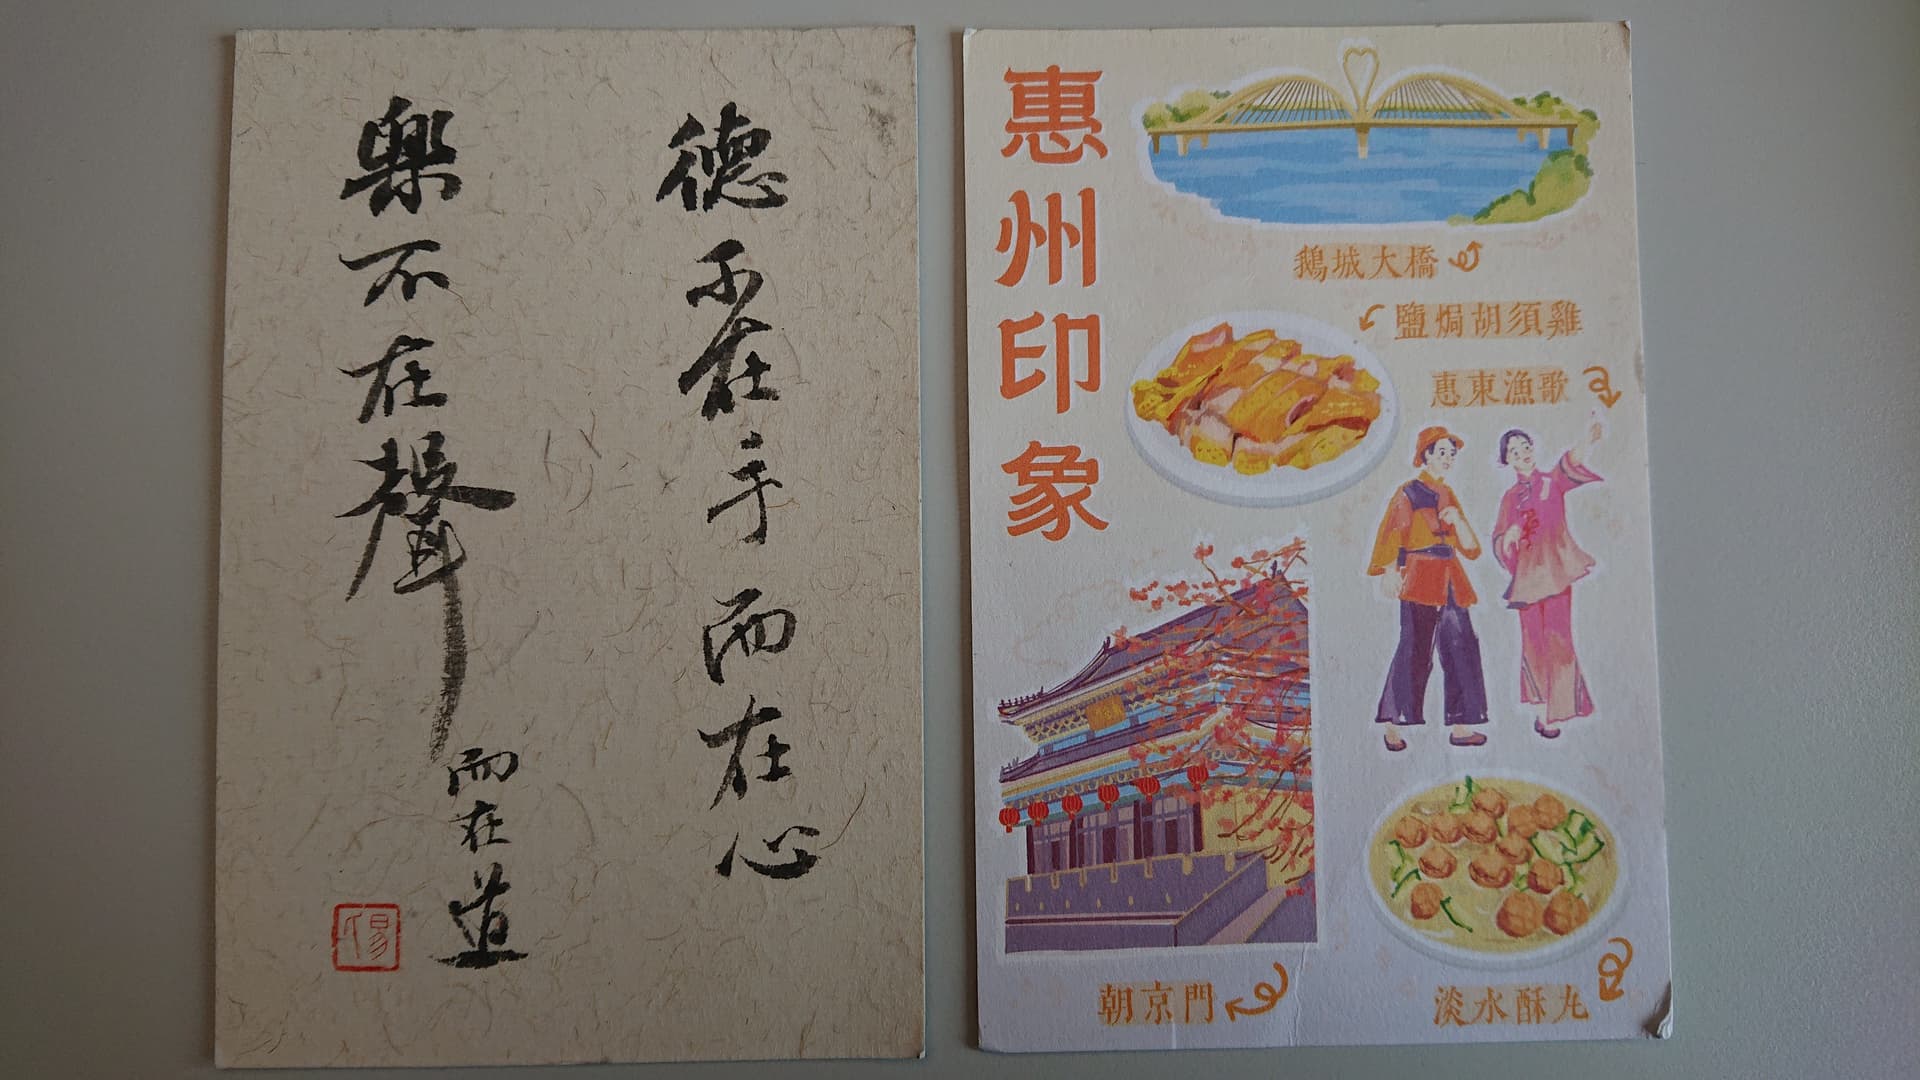 德不在手而在心
樂不在聲
而在道
惠州印象
鵝城大橋
鹽焗胡須雞
惠東漁歌
朝京門
淡水酥丸